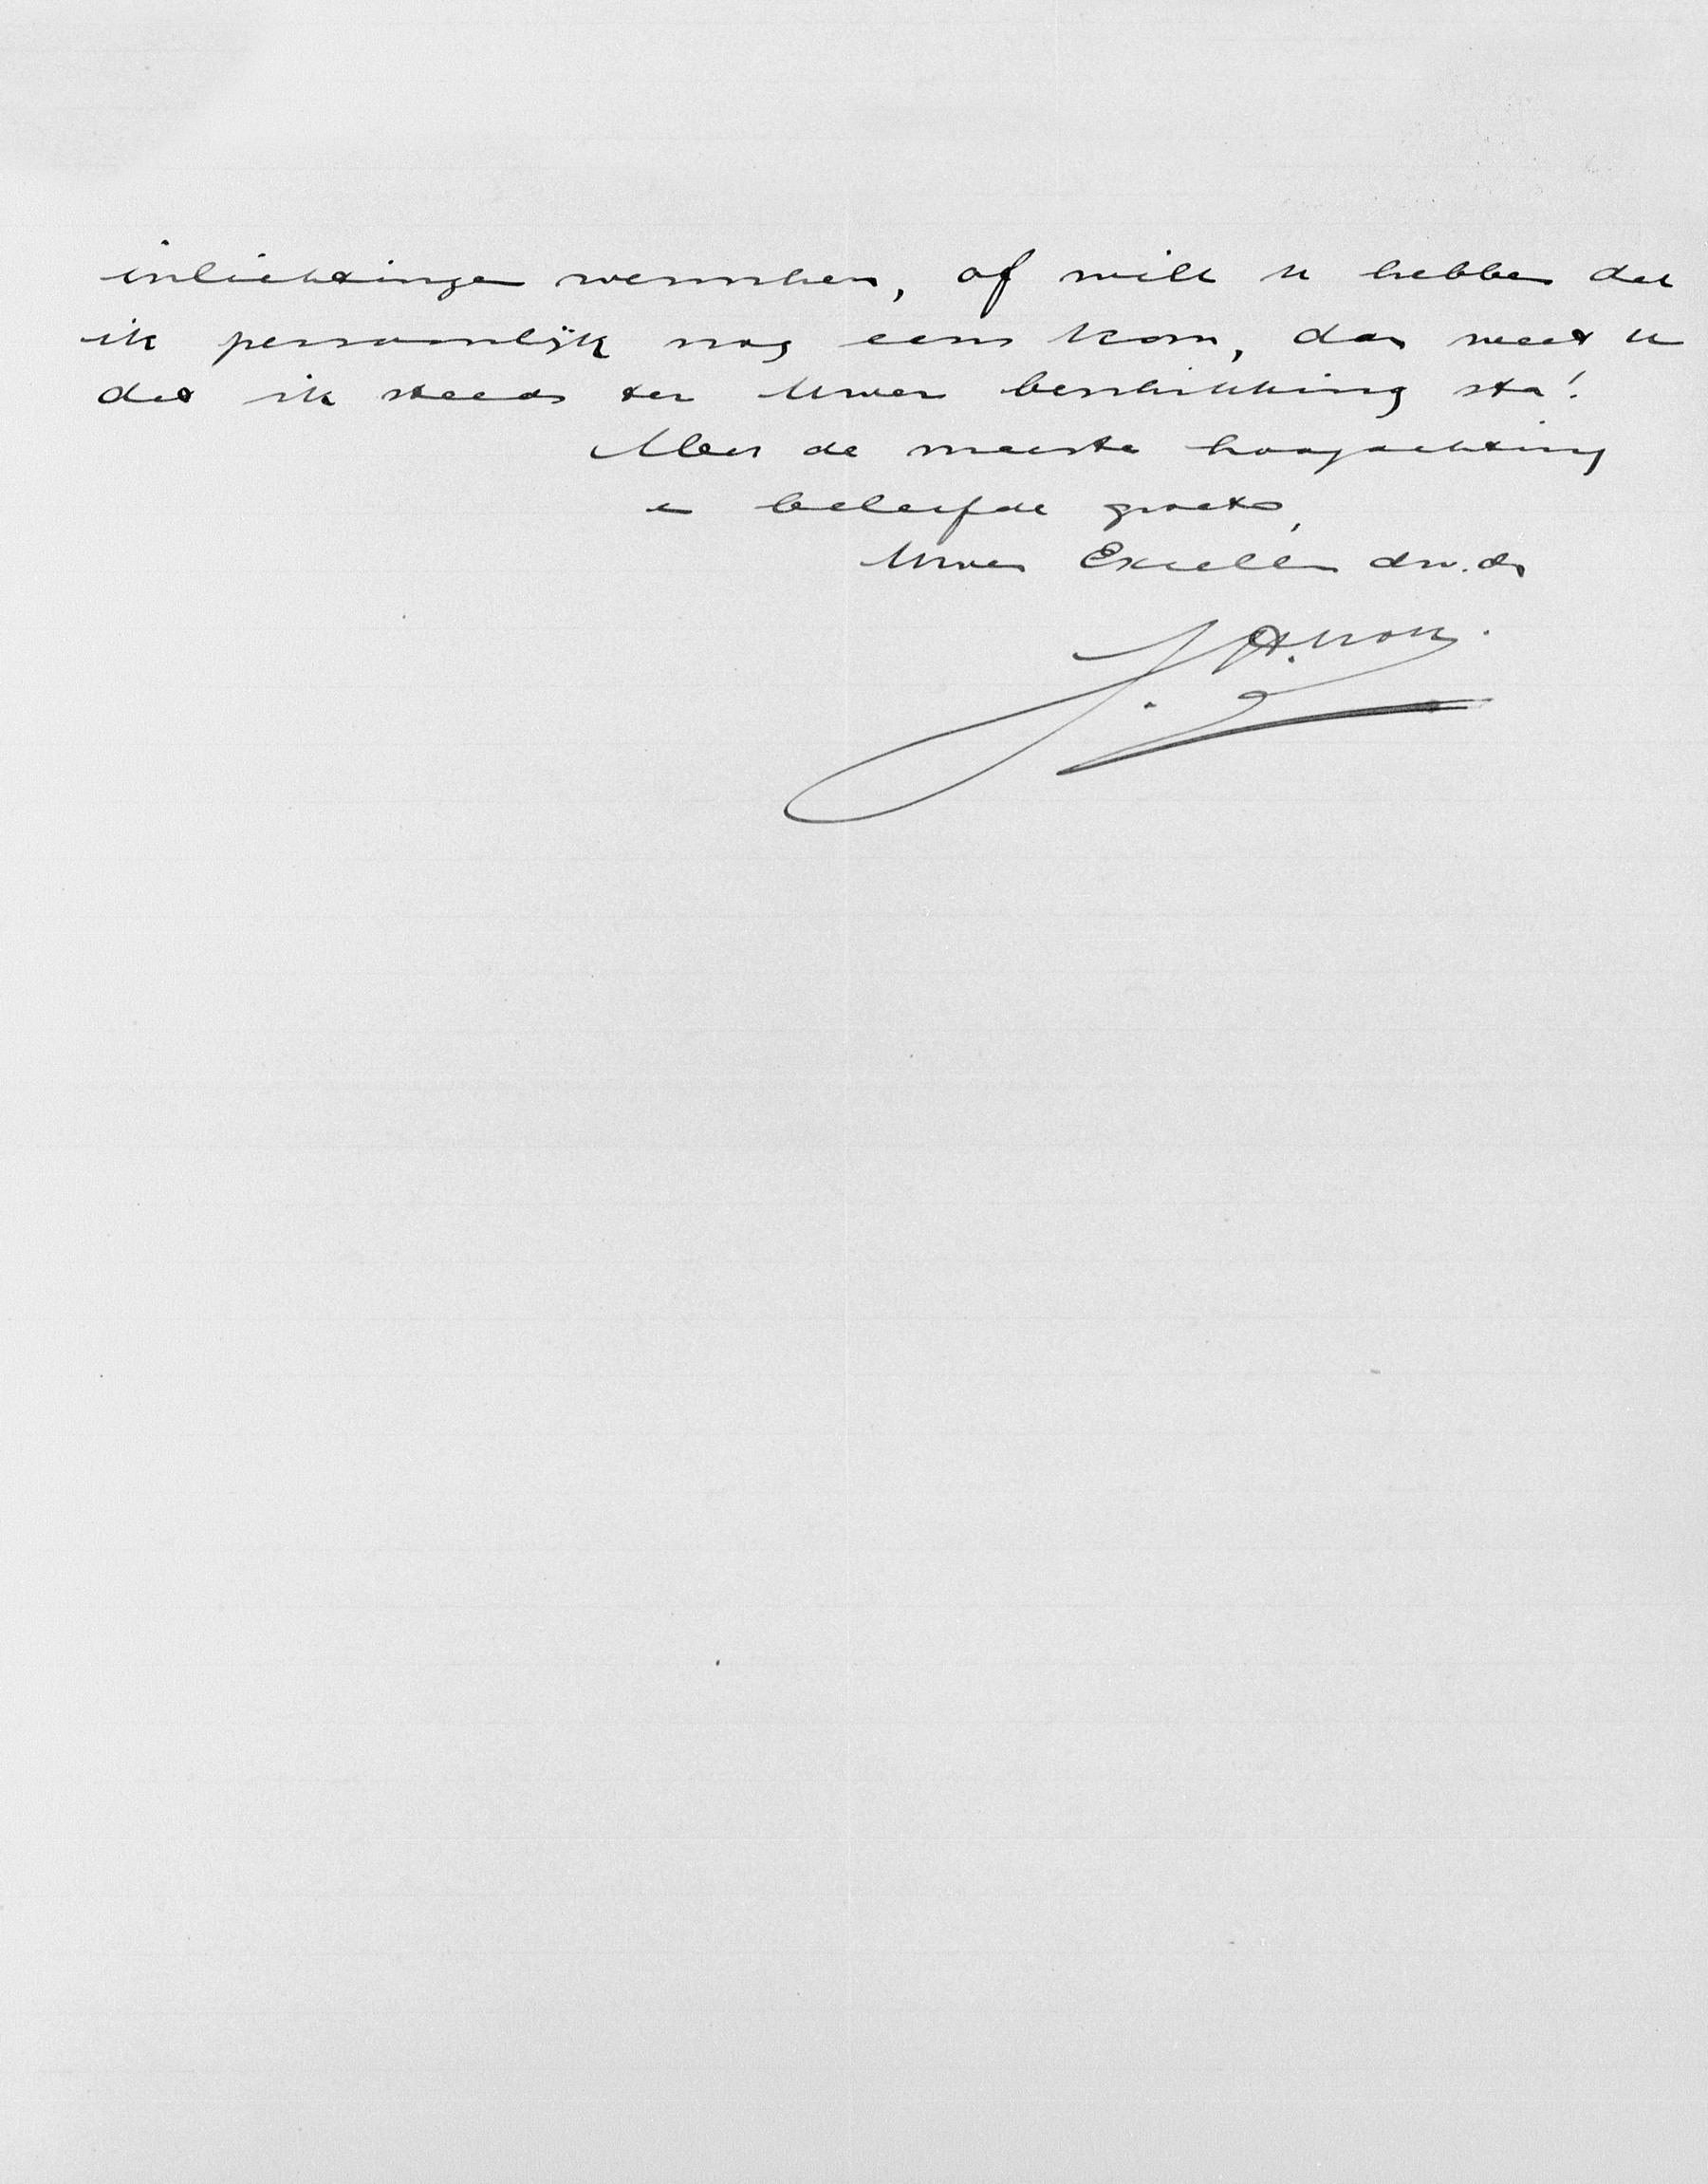 inlichtingen wenschen, of wilt u hebben dat
ik persoonlijk nog eens kom, dan weet u
dat ik steeds ter Uwer beschikking sta!
Met de meeste hoogachting
en beleefde groets,
Uwer Excellen dw. dr